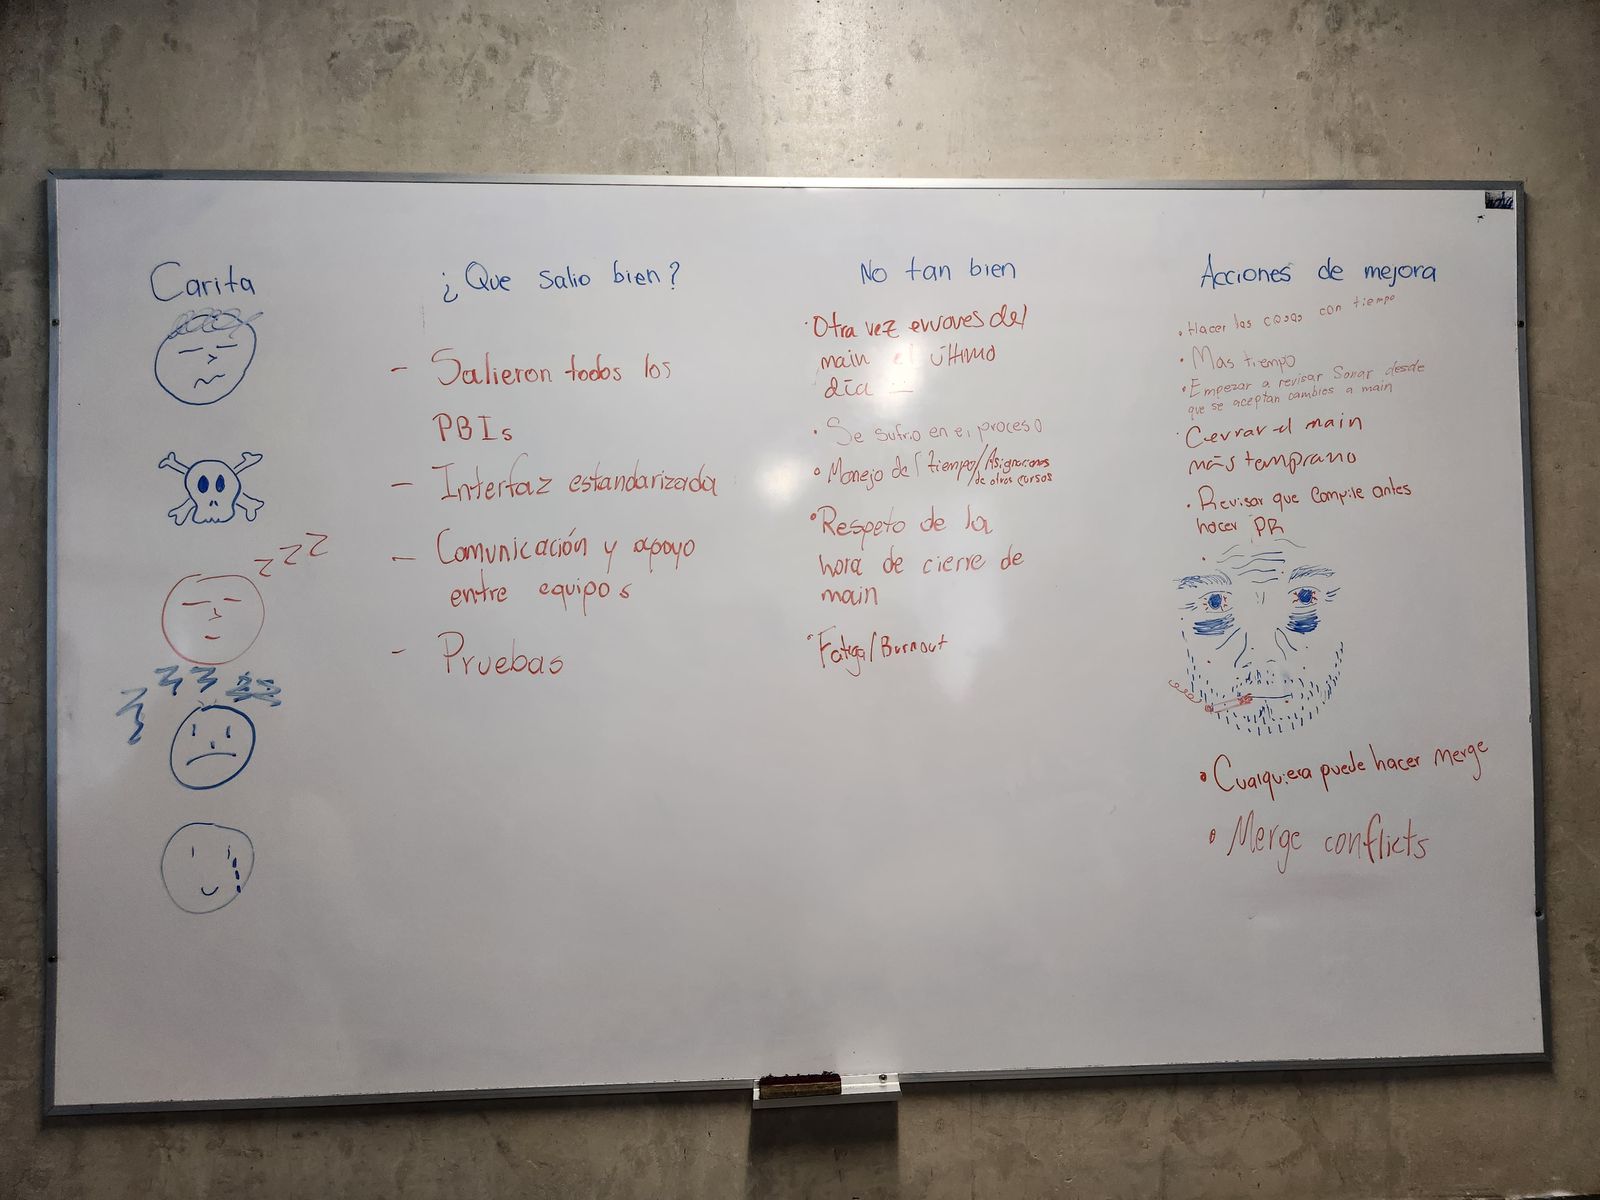 Carita
zzz
¿Que salio bien?
- Salieron todos los
PBIs
- Interfaz estandarizada
- Comunicación y apoyo
entre equipos
- Pruebas
No tan bien
· Otra vez errores del
main el último
día
· Se sufrio en el proceso
· Manejo del tiempo/Asignaciones
de otros cursos
· Respeto de la
hora de cierre de
main
· Fatiga/Burnout
Acciones de mejora
· Hacer las cosas con tiempo
· Mas tiempo
· Empezar a revisar Sonar desde
que se aceptan cambios a main
· Cerrar el main
más temprano
· Revisar que compile antes
hacer PR
· Cualquiera puede hacer merge
· Merge conflicts